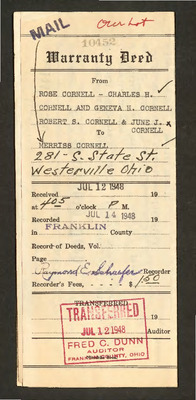 MAIL
Our Lot
10452
Warranty Deed
From
ROSE CORNELL - CHARLES H.
CORNELL AND GENEVA H. CORNELL
ROBERT S. CORNELL & JUNE J.
CORNELL
To
MERRISS CORNELL
281-S. State St.
Westerville Ohio
Received JUL 12 1948 19
at 405 o'clock P M.
Recorded JUL 14 1948 19
in FRANKLIN County
Record of Deeds, Vol.
Page
Raymond E. Schaefer Recorder
Recorder's Fees, $1.50
TRANSFERRED
TRANSFERRED
19
JUL 12 1948
Auditor
FRED C. DUNN
AUDITOR
FRANKLIN COUNTY, OHIO